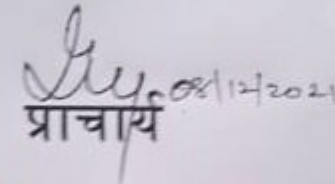 08/12/2021
प्राचार्य